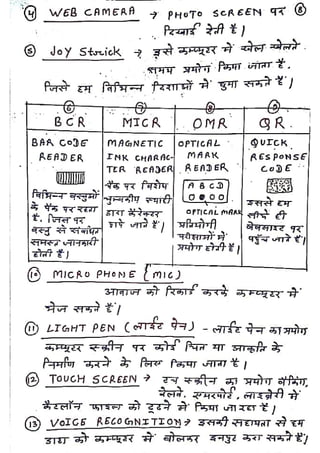 ④ WEB CAMERA → PHOTO SCREEN पर ⑧
दिखाई देती है।
⑤ JOY Strick → इसे कम्प्यूटर में खेल खेलते
समय प्रयोग किया जाता है.
जिसे हम विभिन्न दिशाओं में घुमा सकते हैं।
⑥ BCR
BAR CODE
READER
विभिन्न वस्तुओं
के पैक पर रहता
है. जिस पर
वस्तु से संबंधित
समस्त जानकारी
होती है।
⑦ MICR
MAGNETIC
INK CHARAC-
TER READER
चैक पर विशेष
चुम्बकीय स्याही
द्वारा कैरेक्टर
छापे जाते हैं।
⑧ OMR
OPTICAL
MARK
READER
A B C D
OPTICAL MARK
प्रतियोगी
परीक्षाओं में
प्रयोग होती है।
⑨ QR
QUICK
RESPONSE
CODE
इससे हम
सीधे ही
वेबसाइट पर
पहुँच जाते हैं।
⑩ MICRO PHONE {MIC}
आवाज को रिकार्ड करके कम्प्यूटर में
भेज सकते हैं।
⑪ LIGHT PEN (लाईट पेन) - लाईट पेन का प्रयोग
कम्प्यूटर स्क्रीन पर कोई चित्र या आकृति के
निर्माण करने के लिए किया जाता है।
⑫ TOUCH SCREEN → टच स्क्रीन का प्रयोग बैंकिंग,
रेलवे, एयरपोर्ट, लाइब्रेरी में
कैटलॉग फाइल को ढूढने में किया जाता है।
⑬ VOICE RECOGNITION → इसकी सहायता से हम
डाटा को कम्प्यूटर में बोलकर इनपुट करा सकते हैं।